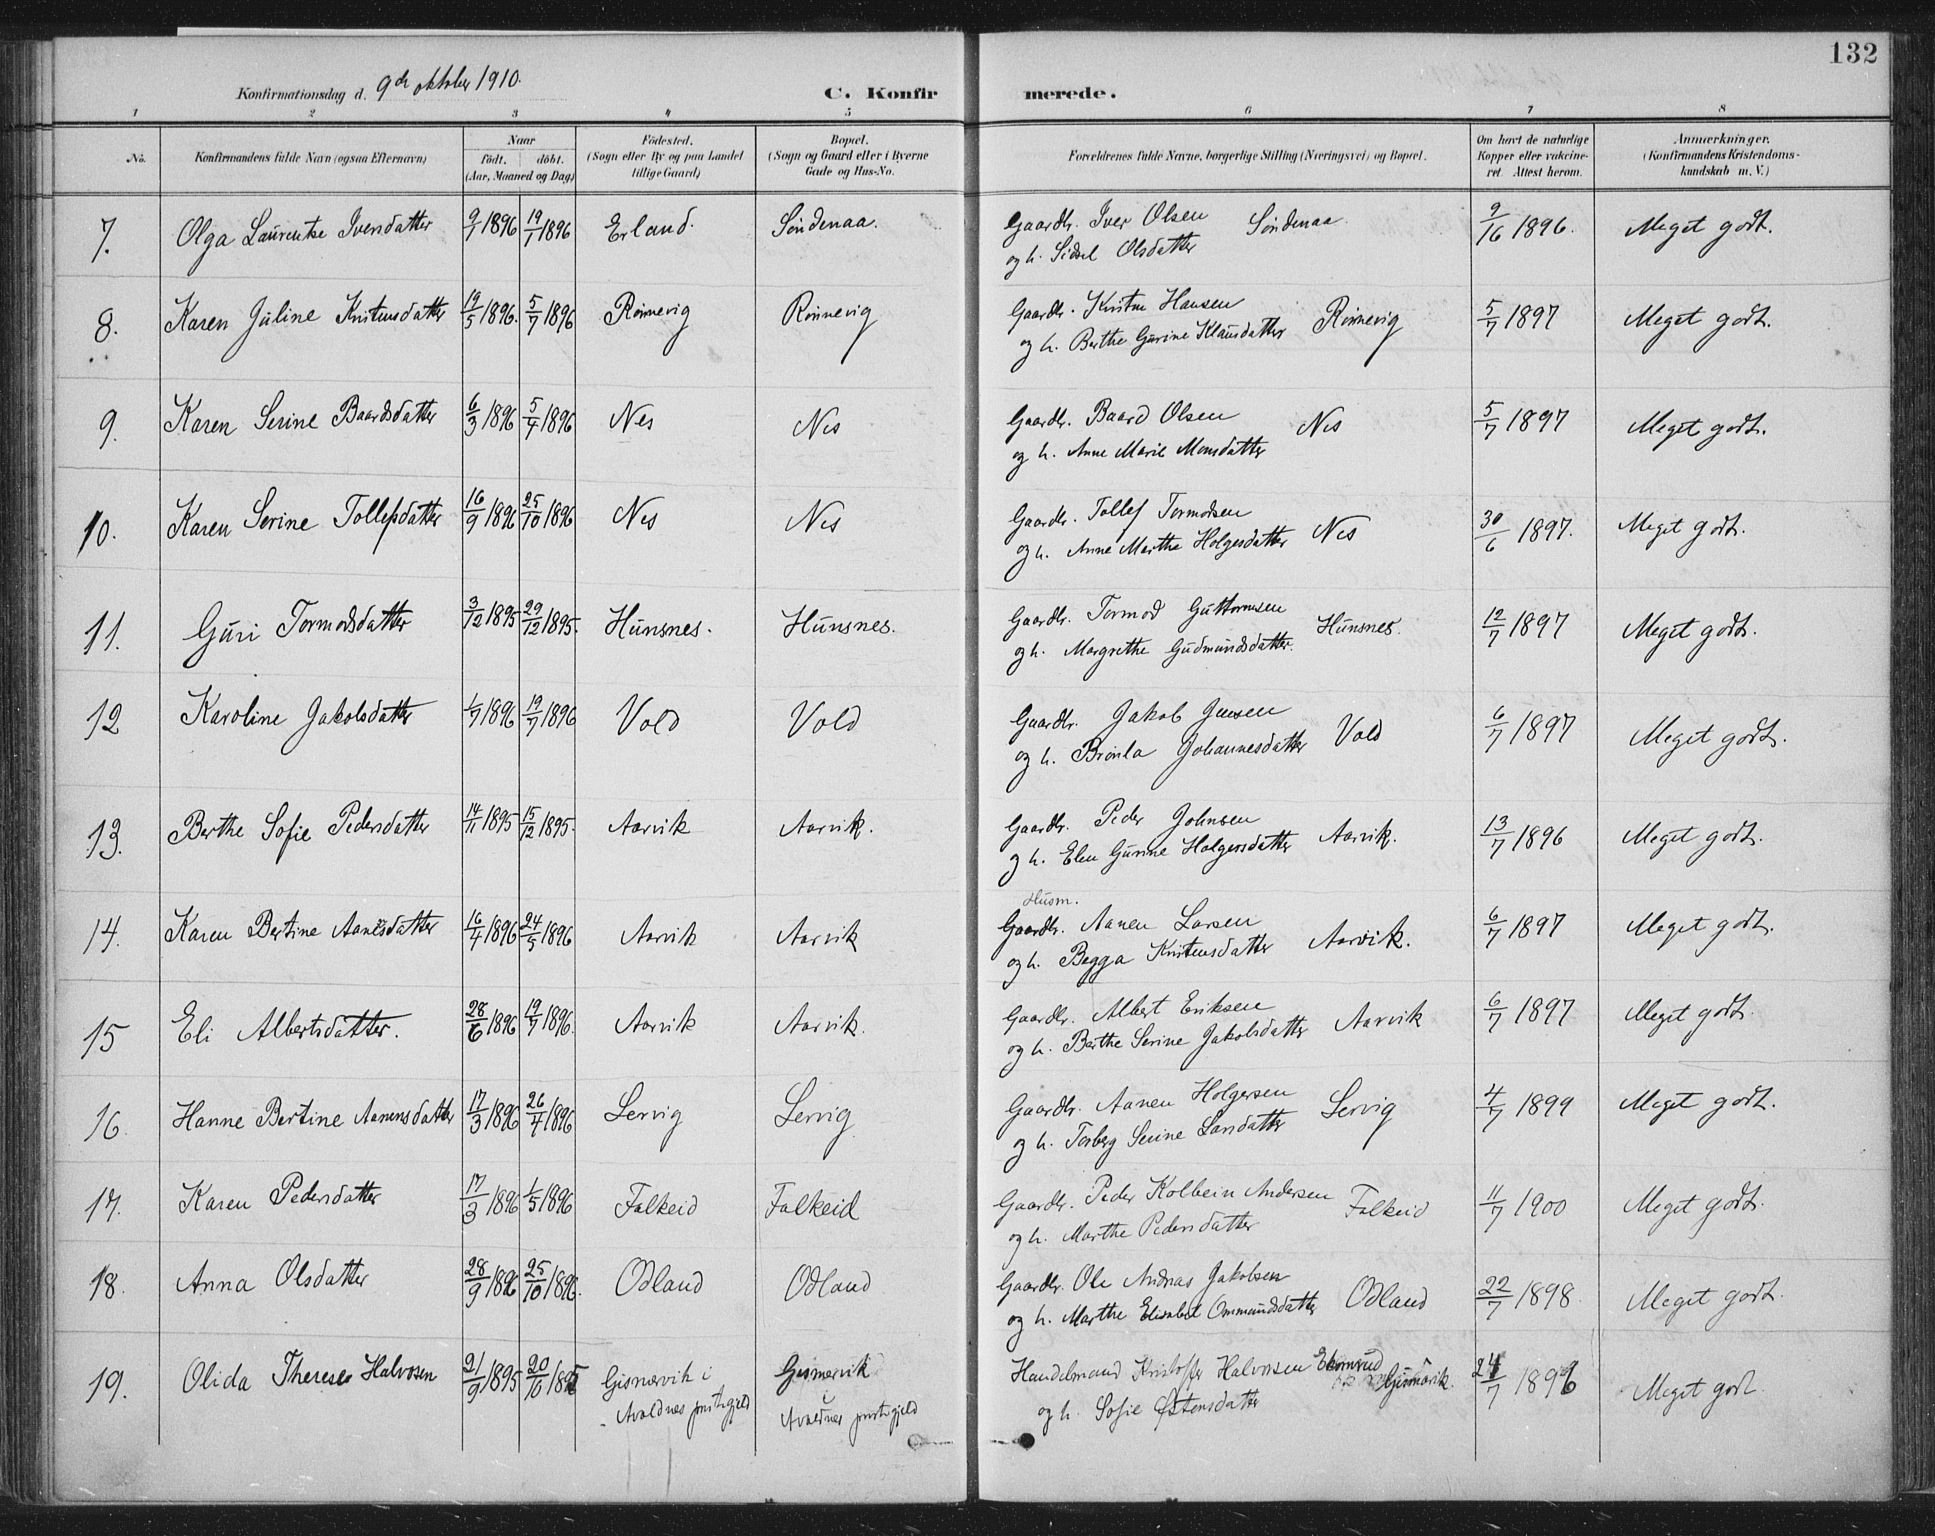 132
Konfirmationsdag d. 9de oktober 1910.
C. Konfirmerede.
1 2 3 4 5 6 7 8
No. Konfirmandens fulde Navn (ogsaa Efternavn) Naar født. døbt. (Aar, Maaned og Dag.) Fødested. (Sogn eller By og paa Landet tillige Gaard) Bopæl. (Sogn og Gaard eller i Byerne Gade og Hus-No. Forældrenes fulde Navne, borgerlige Stilling (Næringsvei) og Bopæl. Om havt de naturlige Kopper eller vakcineret. Attest herom. Anmærkninger. (Konfirmandens Kristendomskundskab m. V.)
7. Olga Laurentse Iversdatter 9/1 1896 19/1 1896 Erland. Søndenaa. Gaardbr. Iver Olsen Søndenaa 9/16 1896. Meget godt.
og h. Sidsel Olsdatter
8. Karen Juline Kristensdatter 19/5 1896. 5/7 1896 Rønnevig Rønnevig Gaardbr. Kristen Hansen Rønnevig 5/7 1897 Meget godt.
og h. Berthe Gurine Klausdatter
9. Karen Serine Baardsdatter 6/3 1896 5/4 1896 Nes Nes Gaardbr. Baard Olsen Nes 5/7 1897 Meget godt.
og h. Anne Marie Monsdatter
10. Karen Serine Tollefsdatter 16/9 1896 25/10 1896 Nes Nes Gaardbr. Tollef Tormodsen Nes 30/6 1897. Meget godt.
og h. Anne Marthe Holgersdatter
11. Guri Tormodsdatter 3/12 1895 29/12 1895. Hunsnes. Hunsnes. Gaardbr. Tormod Guttormsen Hunsnes. 12/7 1897 Meget godt.
og h. Margrethe Gudmundsdatter.
12 Karoline Jakobsdatter 1/7 1896 19/7 1896 Vold Vold Gaardbr. Jakob Jensen Vold 6/7 1897 Meget godt.
og h. Brønla Johannesdatter
13. Berthe Sofie Pedersdatter 14/11 1895 15/12 1895. Aarvik Aarvik. Gaardbr. Peder Johnsen Aarvik. 13/7 1896 Meget godt.
og h. Elen Gurine Holgersdatter
Husm.
14. Karen Bertine Aanesdatter 16/4 1896 24/5 1896 Aarvik Aarvik Gaardbr. Aanen Larsen Aarvik. 6/7 1897 Meget godt.
og h. Begga Kristensdatter
15 Eli Albertsdatter. 28/6 1896 19/7 1896. Aarvik Aarvik. Gaardbr. Albert Eriksen Aarvik 6/7 1897 Meget godt.
og h. Berthe Serine Jakobsdatter
16. Hanne Bertine Aanensdatter 17/3 1896 26/4 1896 Lervig Lervig Gaardbr. Aanen Holgersen Lervig 4/7 1899 Meget godt.
og h. Torberg Serine Larsdatter
17. Karen Pedersdatter 17/3 1896 1/5 1896 Falkeid Falkeid Gaardbr. Peder Kolbein Andersen Falkeid 11/7 1900 Meget godt.
og h. Marthe Pedersdatter
18. Anna Olsdatter 28/9 1896 25/10 1896. Odland Odland Gaardbr. Ole Andreas Jakobsen Odland 22/7 1898. Meget godt.
og h. Marthe Elisabet Ommundsdatter
19. Olida Therese Halvorsen 21/9 1895 20/10 1895 Gismervik i Avaldnes prestegjeld Gismervik i Avaldnes prestegjeld Handelsmand Kristoffer Halvorsen Gismervik. 24/7 1896 Meget godt.
og h. Sofie Østensdatter